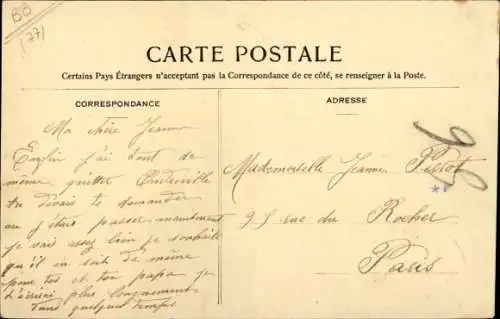 BB
(77)
CARTE POSTALE
Certains Pays Étrangers n'acceptant pas la Correspondance de ce côté, se renseigner à la Poste.
CORRESPONDANCE
Ma chère Jeanne
Enfin j'ai tant de
même quitter
tu devais te demander
où j'étais passée, maintenant
je vais assez bien je souhaite
qu'il en soit de même
pour toi et ton papa je
t'écrirai plus longuement
dans quelques temps
ADRESSE
Mademoiselle Jeanne
95 rue du Rocher
Paris